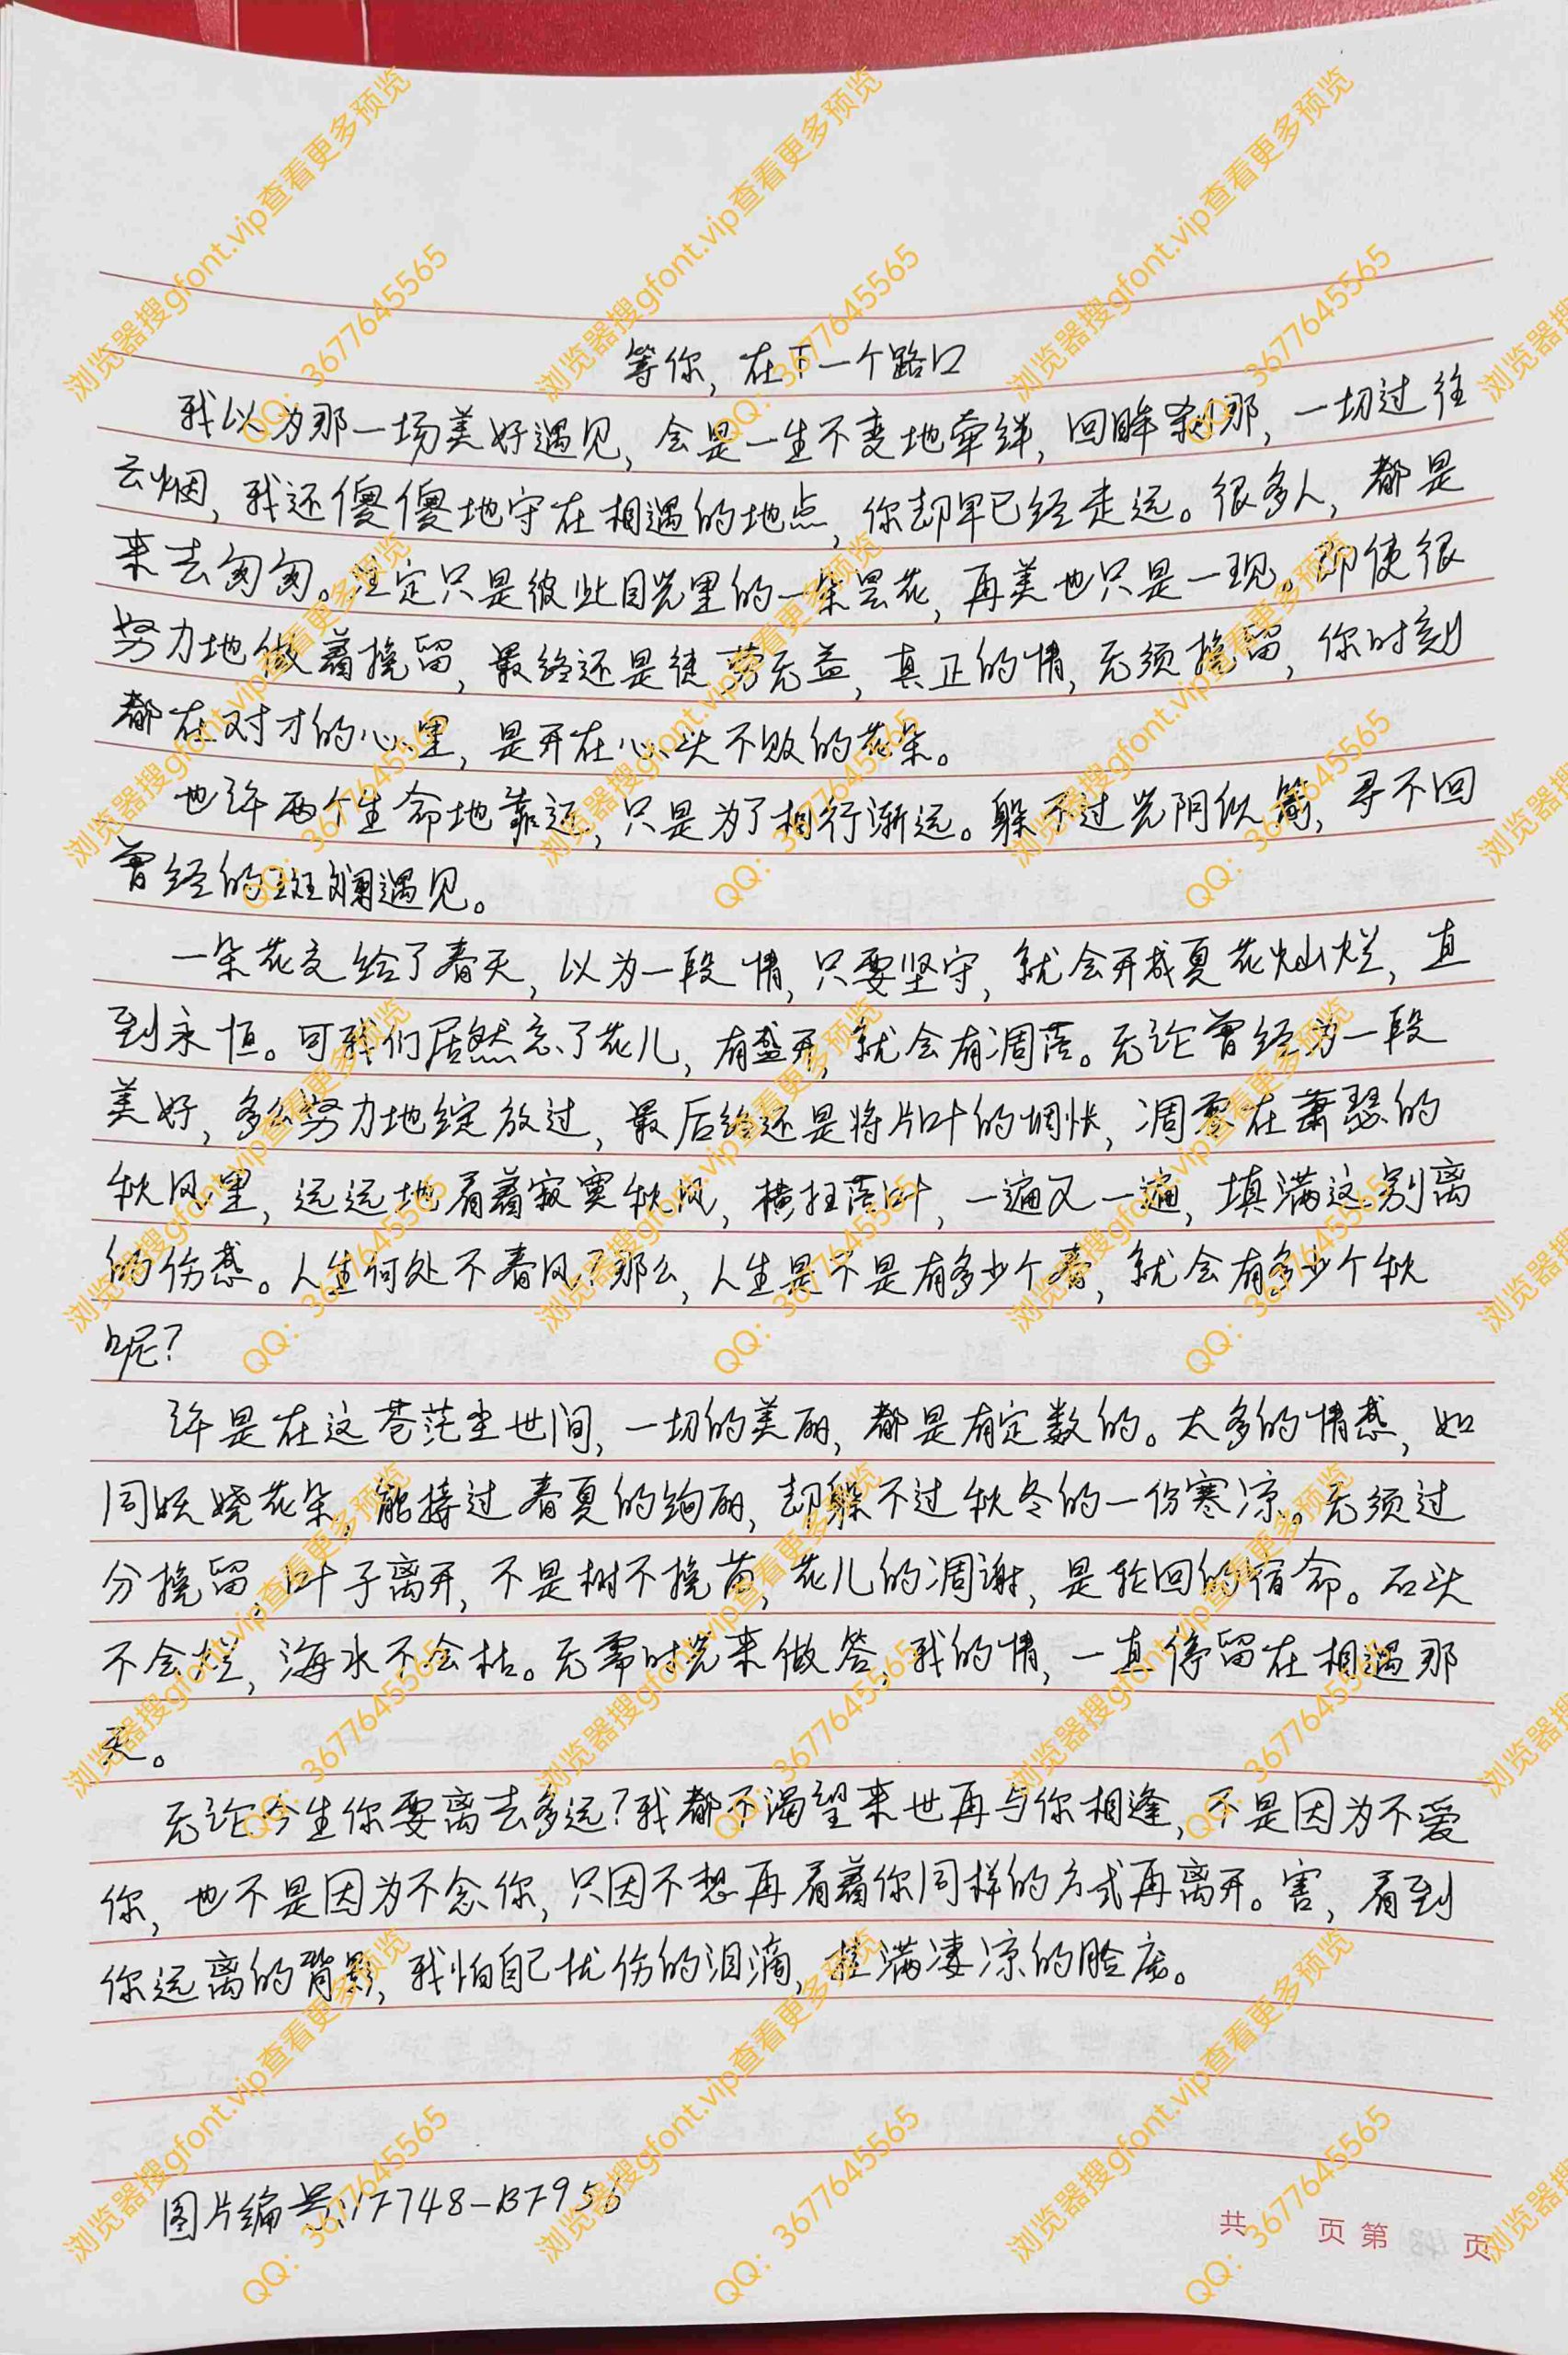 等你，在下一个路口
我以为那一场美好遇见，会是一生不变地牵绊，回眸刹那，一切过往
云烟，我还傻傻地守在相遇的地点，你却早已经走远。很多人，都是
来去匆匆。注定只是彼此目光里的一朵昙花，再美也只是一现。即使很
努力地做着挽留，最终还是徒劳无益，真正的情，无须挽留，你时刻
都在对才的心里，是开在心头不败的花朵。
也许两个生命地靠近，只是为了相行渐远。躲不过光阴似箭，寻不回
曾经的斑斓遇见。
一朵花交给了春天，以为一段情，只要坚守，就会开成夏花灿烂，直
到永恒。可我们居然忘了花儿，有盛开，就会有凋落。无论曾经为一段
美好，多么努力地绽放过，最后终还是将片叶的惆怅，凋零在萧瑟的
秋风里，远远地看着寂寞秋风，横扫落叶，一遍又一遍，填满这别离
的伤感。人生何处不春风？那么，人生是不是有多少个春，就会有多少个秋
呢？
许是在这苍茫尘世间，一切的美丽，都是有定数的。太多的情感，如
同妖娆花朵，能接过春夏的绚丽，却躲不过秋冬的一份寒凉。无须过
分挽留，叶子离开，不是树不挽留，花儿的凋谢，是轮回的宿命。石头
不会烂，海水不会枯。无需时光来做答，我的情，一直停留在相遇那
天。
无论今生你要离去多远？我都不渴望来世再与你相逢，不是因为不爱
你，也不是因为不念你，只因不想再看着你同样的方式再离开。害，看到
你远离的背影，我怕自己忧伤的泪滴，挂满凄凉的脸庞。
图片编号:17748-B7956
共 页 第 页
浏览器搜gfont.vip查看更多预览
QQ：3677645565